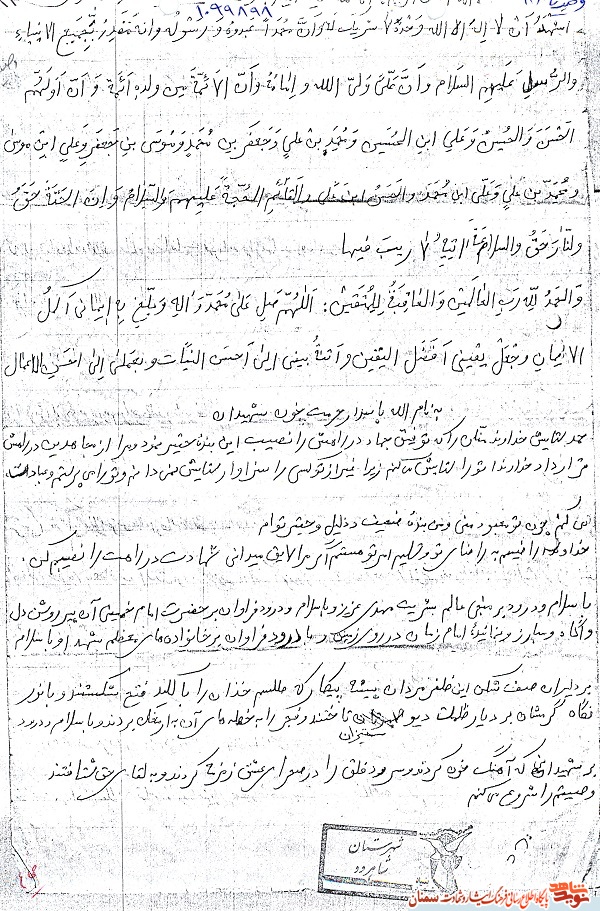 ۱۰۹۹۸۹۸
اشهد ان لا اله الا الله وحده لا شریک له و ان محمدا عبده و رسوله و انه بجمیع الانبیاء
والرسول علیهم السلام و ان علی ولی الله و امامة و ان الائمة من ولده ائمة و ان اولهم
الحسن والحسین و علی ابن الحسین و محمد بن علی و جعفر بن محمد و موسی بن جعفر و علی ابن موسی
و محمد بن علی و علی ابن محمد والحسن ابن علی والقائم الحجة علیهم والسلام و ان الجنة حق
والنار حق والساعة اتیة لا ریب فیها
والحمد لله رب العالمین والعاقبة للمتقین: اللهم صل علی محمد و اله و بلغ به ایمانی اکمل
الایمان وجعل یقینی افضل الیقین و انته بنیتی الی احسن النیات و بعملی الی احسن الاعمال
به نام الله پاسدار حرمت خون شهیدان
حمد ستایش خداوند منان را که توفیق جهاد در راهش را نصیب این بنده حقیر نمود و مرا از مجاهدین در راهش
قرار داد خداوندا تو را ستایش می کنم زیرا غیر از تو کسی را سزاوار ستایش نمی دانم و تو را می پرستم و عبادت
می کنم چون تو معبود منی و من بنده ضعیف و ذلیل و حقیر توام
خداوندا راضیم به رضای تو و تسلیم امر تو هستم اگر مرا لایق میدانی شهادت در راهت را نصیبم کن.
با سلام و درود بر منجی عالم بشریت مهدی عزیز و با سلام و درود فراوان بر حضرت امام خمینی آن پیر روشن دل
و آگاه و مبارز و نماینده امام زمان در روی زمین و با درود فراوان بر خانواده های معظم شهدا و با سلام
بر دلیران صف شکن این ظفر مردان همیشه پیکار که طلسم خزان را با کلید فتح شکستند و با نور
نگاه گرمشان بر دیار ظلمت دیو ستیزان تاختند و را به خطه های آن به ارمغان بردند و با سلام و درود
بر شهیدانی که آهنگ خون کردند و سرود فلق را در صحرای عشق زمزمه کردند و به لقای حق شتافتند
وصیتم را شروع می کنم
شهرستان
شاهرود
نوید شاهد
پایگاه اطلاع رسانی فرهنگ ایثار و شهادت سمنان